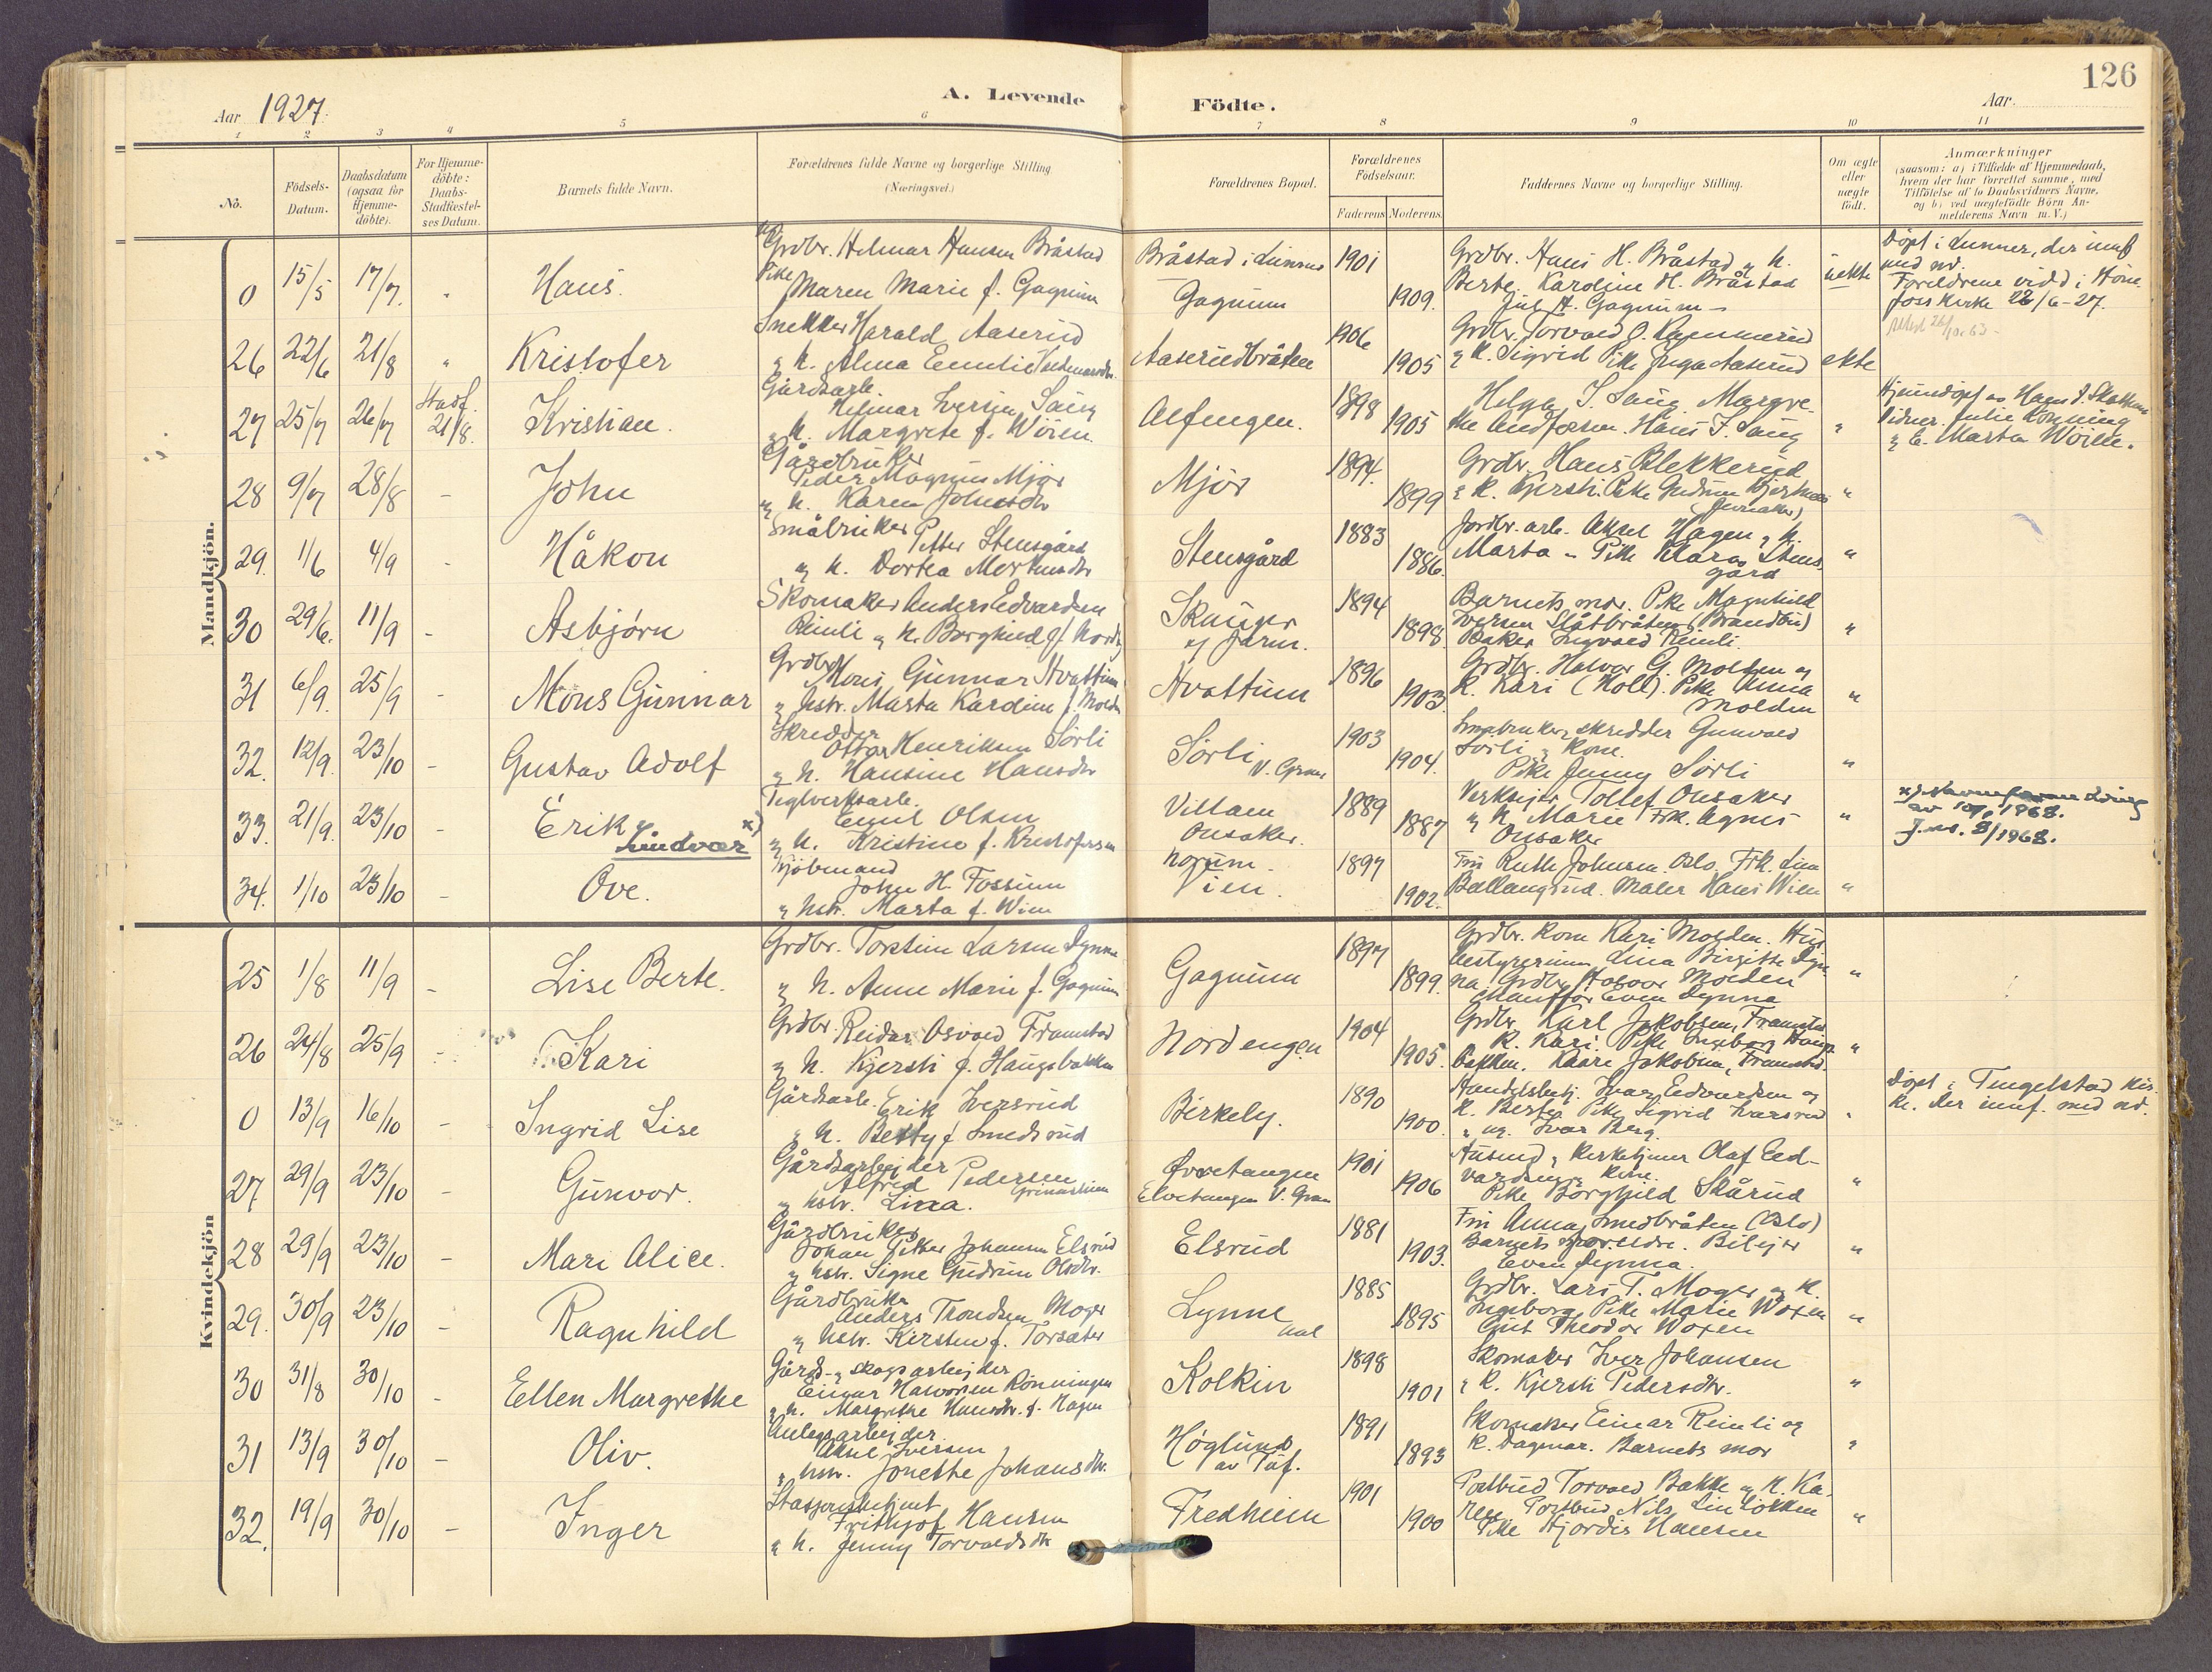 126
Aar 1927.
A. Levende Födte.
Aar.
1 2 3 4 5 6 7 8 9 10 11
No.
Födsels-Datum.
Daabsdatum (ogsaa for Hjemme-döbte).
For Hjemme-döbte: Daabs-Stadfæstel-ses Datum.
Barnets fulde Navn.
Forældrenes fulde Navne og borgerlige Stilling (Næringsvei.)
Forældrenes Bopæl.
Forældrenes Födselsaar.
Faderens Moderens
Faddernes Navne og borgerlige Stilling.
Om ægte eller uægte födt.
Anmærkninger
(saasom: a) i Tilfælde af Hjemmedaab,
hvem der har forrettet samme, med
Tilföielse af to Daabsvidners Navne,
og b) ved uægtefödte Börn An-
melderens Navn m. V.)
Mandkjön.
0 15/5 17/7. Hans.
Grdbr. Helmar Hansen Bråstad
Pike Maren Marie f. Gagnum
Bråstad i Lunner
Gagnum
1901
1909.
Grdbr. Hans H. Bråstad og k.
Berte. Karoline H. Bråstad
Jul A. Gagnum
uekte
Döpt i Lunner, der innf.
med no.
Foreldrene vidd i Höne
foss kirke 22/6-27.
26 22/6 21/8 " Kristofer
Snekker Harald Aaserud
og h. Alma Emilie
Aaserudbråten
1906
1905
Grdbr. Torvald O.
og k. Sigrid Pike Inga Aaserud
ekte
27 25/7 26/7 Stadf. 21/8. Kristian.
Gårdsarb.
Helmar Iversen Saug
og h. Margrete f. Wöien.
Alfengen.
1898
1905
Helge I. Saug Margre-
the Andfossen. Hans I. Saug
"
Hjemmedöpt av Hans I.
Vidner. Julie
og b. Marta Wöien.
28 9/7 28/8 - John
Gårdbruker
Peder Magnus Mjör
og h. Karen Johnsdtr
Mjör
1894.
1899
Grdbr. Hans Blekkerud
og k. Kjersti. Pike Gudrun
(Jevnaker)
"
29. 1/6 4/9 - Håkon
Småbruker Petter Stensgård
og h. Dortea
Stensgård
1883
1886.
Jordbr. arb. Aksel Hagen og k.
Marta - Pike Klara Stens
gård
"
30 29/6. 11/9 - Asbjörn
Skomaker Anders Edvardsen
Reinli og h. Borghild f.
Skauger
av Jarm.
1894
1898.
Barnets mor. Pike Magnhild
Iversen Slåtbråten (Brandbu)
Baker Ingvald Reinli.
"
31 6/9. 25/9 - Mons Gunnar
Grdbr.
Mons Gunnar Hvattum
og hstr. Marta Karoline f. Molden
Hvattum
1896
1903.
Grdbr. Halvor G. Molden og
k. Kari (Koll). Pike Anna
Molden
"
32. 12/9. 23/10 - Gustav Adolf
Skredder
Ottar Henriksen Sörli
og h. Hansine Hansdtr
Sörli
V. Gran
1903
1904.
Småbruker, skredder Gunvald
Sörli og kone.
Pike Jenny Sörli
"
33. 21/9. 23/10 - Erik x)
Lundvar
Teglverksarb.
Emil Olsen
og h. Kristine f. Kristofersen
Villam
Onsaker.
1889
1887
Verkseier Tollef Onsaker
og k. Marie Frk. Agnes
Onsaker
"
x)
av 1968.
J.nr. 8/1968.
34. 1/10 23/10 - Ove.
Kjöbmand
John H. Fossum
og hstr. Marta f. Wien
Norum.
Vien.
1897
1902.
Fru Ruth Johnsen. Oslo, Frk. Lina
Ballangrud. Maler Hans Wien
"
Kvindekjön
25 1/8 11/9 - Lise Berte.
Grdbr. Torstein Larsen Dynna
og h. Anne Marie f. Gagnum
Gagnum
1897
1899.
Grdbr. kone Kari Molden. Hus
bestyrerinne Lina Birgitte Dyn-
na Grdbr. Halvor Molden
chaufför Even Dynna
"
26 24/8 25/9 - Kari
Grdbr. Reidar Osvald Framstad
og h. Kjersti f. Haugsbakken
Nordengen
1904
1905.
Grdbr. Karl Jakobsen, Framstad
k. Kari. Pike Ingeborg Haugs-
bakken. Kaare Jakobsen, Framstad.
"
0 13/9 16/10 - Ingrid Lise
Gårdsarb. Erik Iversrud
og h. Betty f. Smedsrud
Birkely.
1890
1900.
Handelsbetj. Ivar Edvardsen og
k. Berte Pike Sigrid Iversrud
og ug. Ivar Berg.
"
Döpt i Tingelstad kir-
ke. Der innf. med no.
27 29/9 23/10 - Gunvor.
Gårdsarbeider
Alfred Pedersen
og hstr. Lina.
Elvetangen V. Gran
1901
1906
og kirketjener Olaf Ed-
vardsen og kone.
Pike Borghild Skårud
"
28 29/9 23/10 - Mari Alice.
Gårdbruker
Johan Petter Johansen Elsrud
og hstr. Signe Gudrun Olsdtr.
Elsrud
1881
1903.
Fru Anna Smedbråten (Oslo)
Barnets foreldre. Bileier
Even Dynna.
"
29. 30/9 23/10 - Ragnhild
Gårdbruker
Anders Trondsen Moger
og hstr. Kirsten f. Torsæter
Lynne
1885
1895
Grdbr. Lars T. Moger og k.
Ingeborg Pike Marie Woxen
Gut Theodor Woxen
"
30 31/8 30/10 - Ellen Margrethe
Gårds- og skogsarbeider
Einar Halvorsen Rönningen
og h. Margrethe Hansdtr. f. Hagen
Kolkin
1898
1901
Skomaker Iver Johansen
og k. Kjersti Pedersdtr.
"
31 13/9 30/10 - Oliv.
Anlegsarbeider.
Aksel Iversen
og hstr. Jonette Johansdtr.
Höglund
av Tuf.
1891
1893
Skomaker Einar Reinli og
k. Dagmar. Barnets mor
"
32. 19/9 30/10 - Inger
Stasjonsbetjent
Frithjof Hansen
og h. Jenny Torvaldsdtr
Fredheim
1901
1900
Postbud Torvald Bakke og k. Ka-
ren Postbud Nils Linlökken
Pike Hjordis Hansen
"